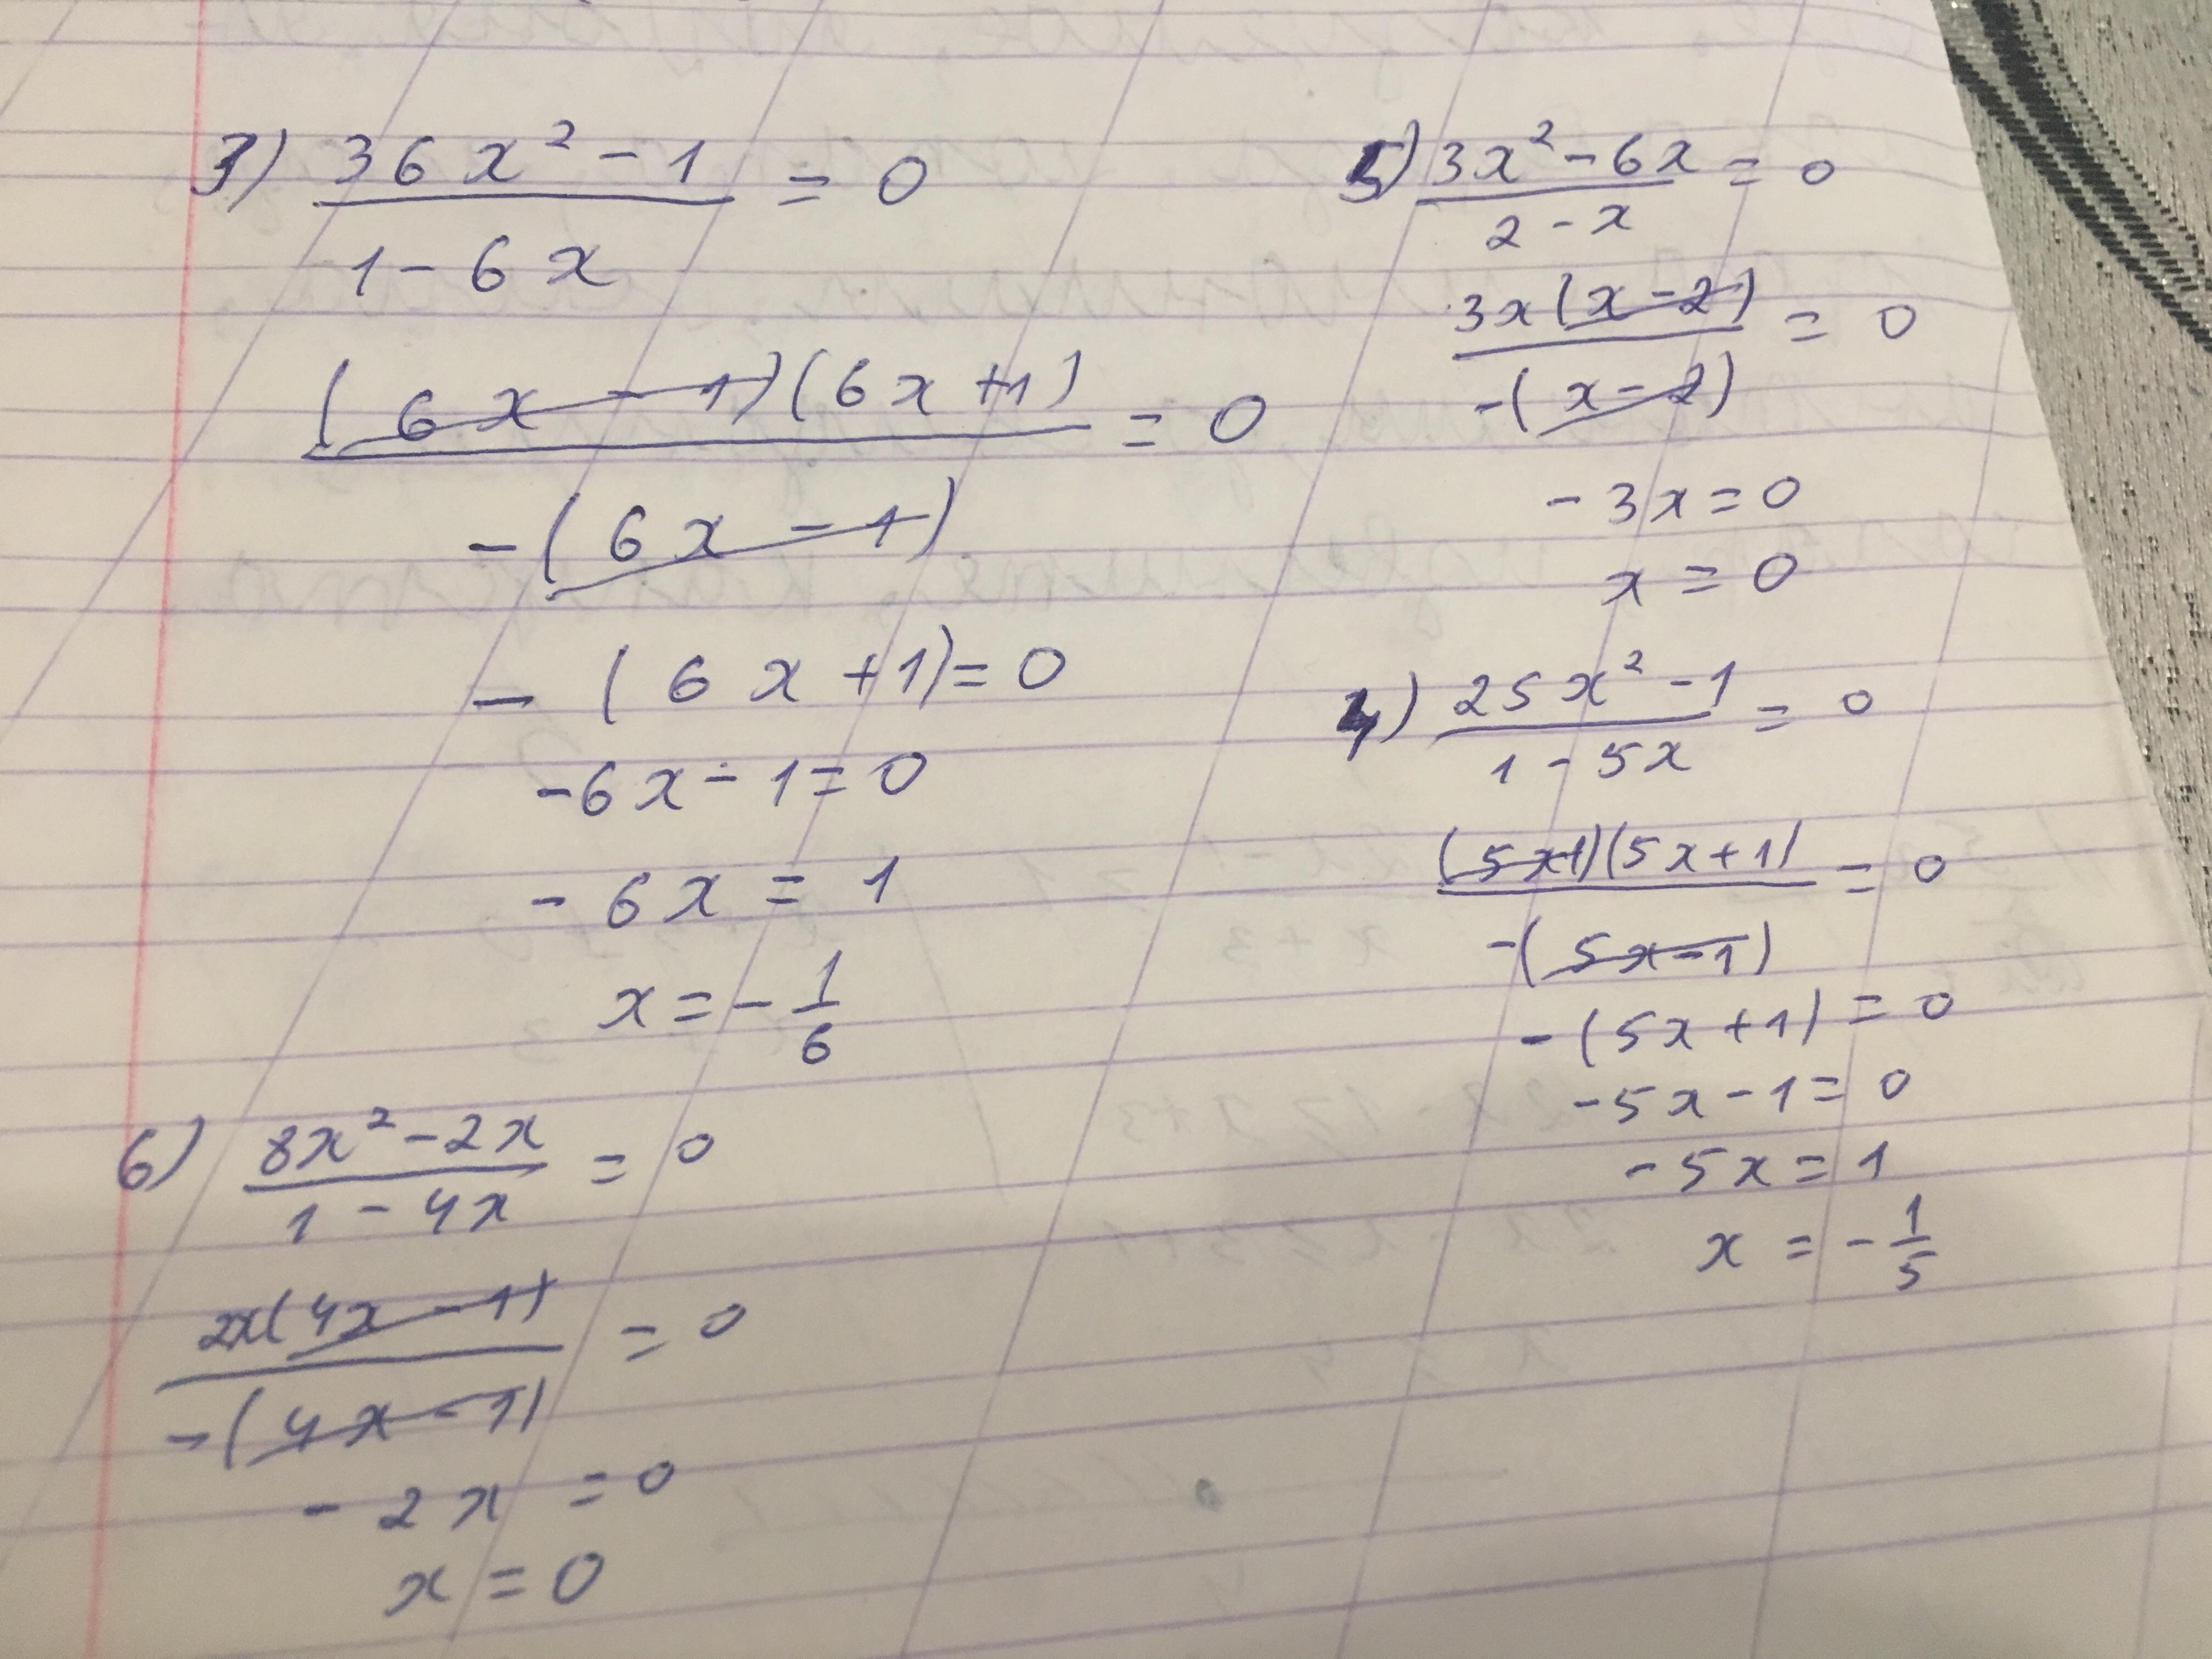 3) (36x² - 1)/(1 - 6x) = 0
((6x - 1)(6x + 1))/(-(6x - 1)) = 0
- (6x + 1) = 0
-6x - 1 = 0
- 6x = 1
x = - 1/6
6) (8x² - 2x)/(1 - 4x) = 0
(2x(4x - 1))/(-(4x - 1)) = 0
- 2x = 0
x = 0
5) (3x² - 6x)/(2 - x) = 0
(3x(x - 2))/(-(x - 2)) = 0
- 3x = 0
x = 0
4) (25x² - 1)/(1 - 5x) = 0
((5x-1)(5x + 1))/(-(5x - 1)) = 0
- (5x + 1) = 0
-5x - 1 = 0
- 5x = 1
x = - 1/5